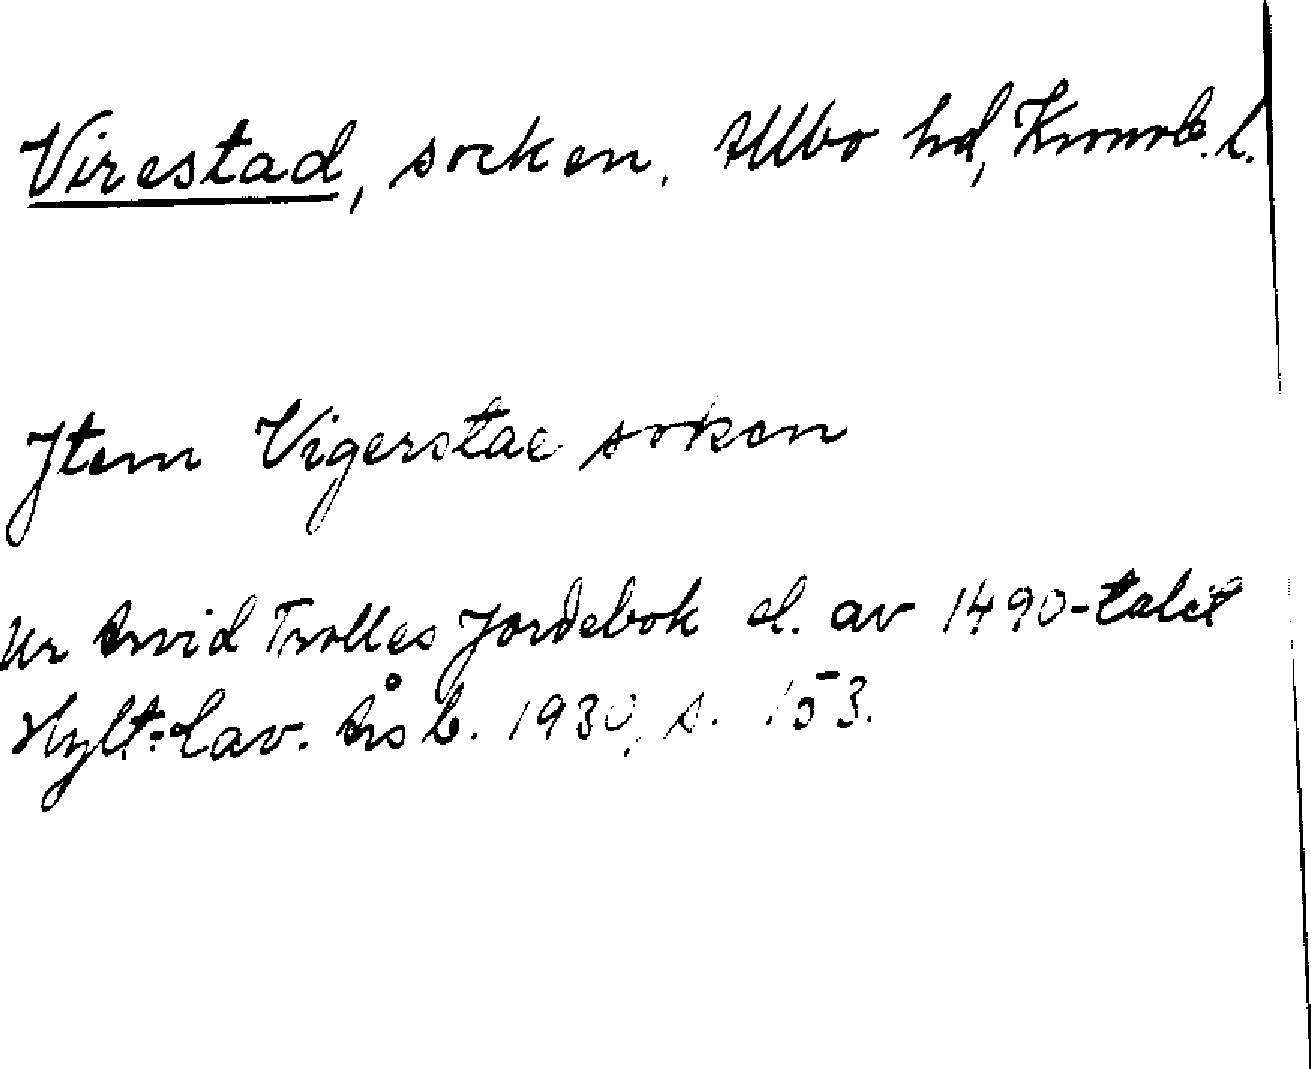 Virestad, socken. Allbo hd, Kronob. l.
Jtem Vigerstae soken
Ur Arvid Trolles Jordebok sl. av 1490-talet
Hylt=Cav. Årsb. 1930, s. 153.